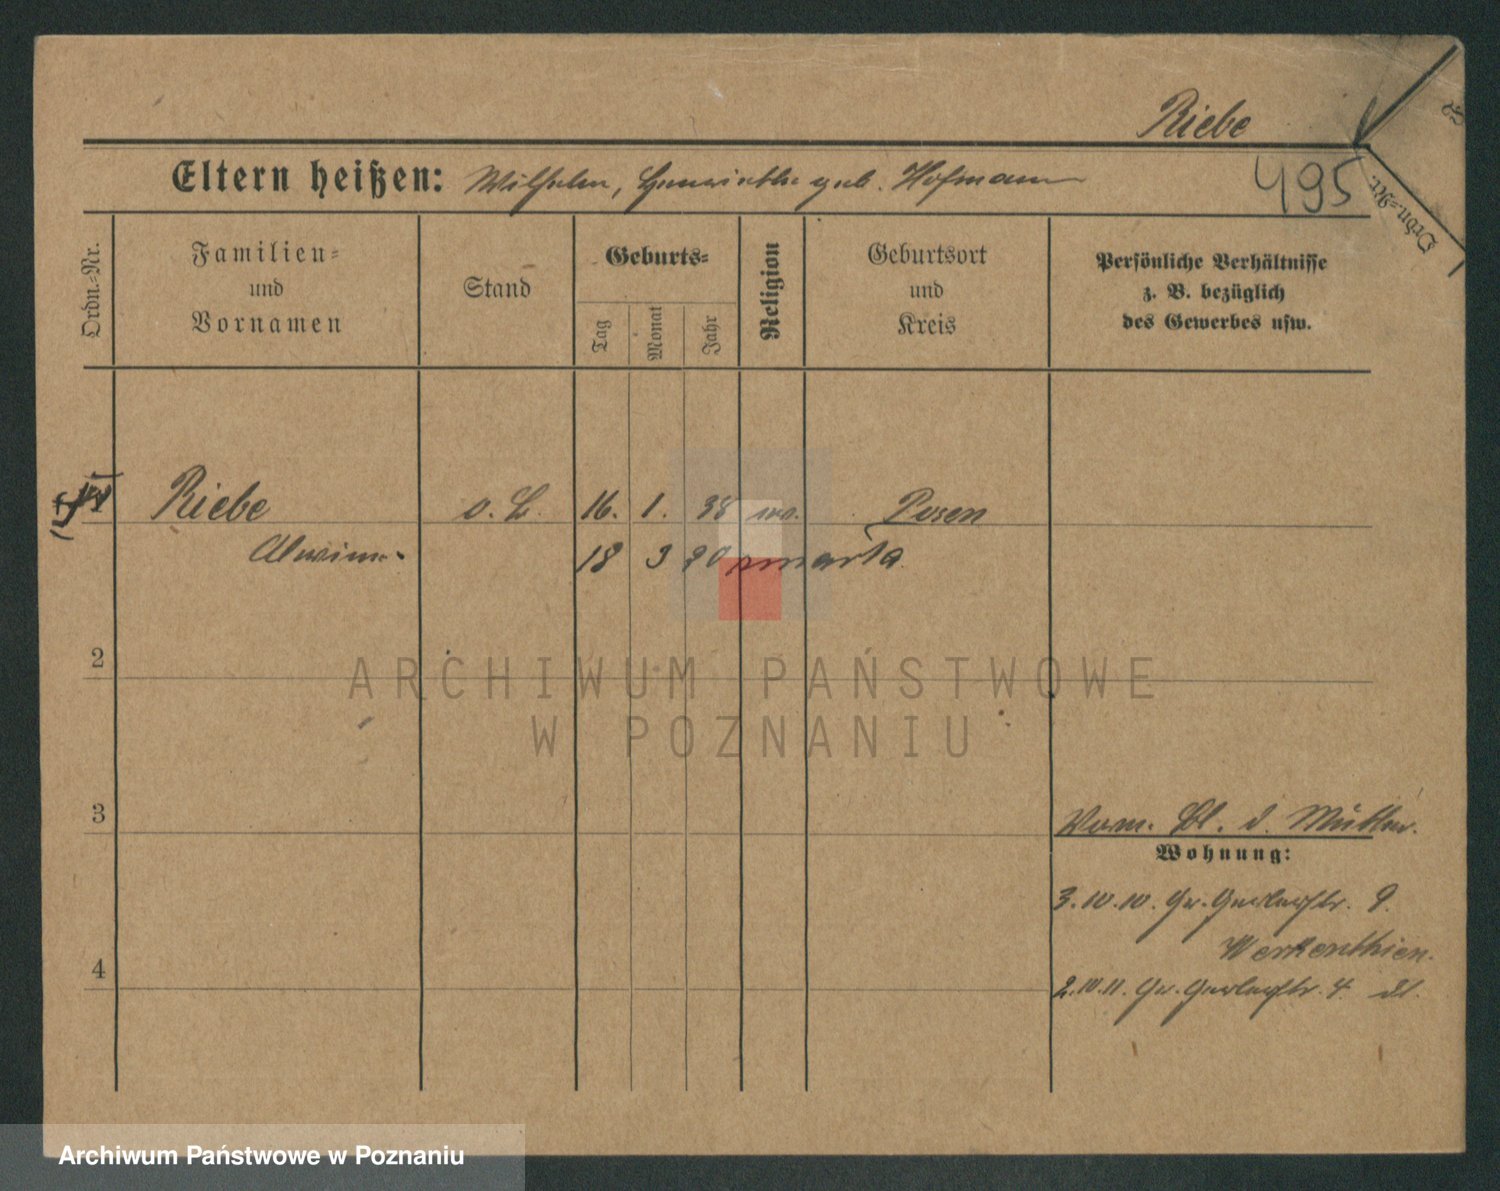 Riebe
Eltern heißen: Wilhelm, Henriette geb. Hofmann
495
Ordn.-Nr.
Ordn.-Nr.
Familien-
und
Vornamen
Stand
Geburts-
Tag
Monat
Jahr
Religion
Geburtsort
und
Kreis
Persönliche Verhältnisse
z. B. bezüglich
des Gewerbes usw.
Riebe o. 16. 1. 38 Posen
18 3 90 marła
2
ARCHIWUM PAŃSTWOWE
W POZNANIU
3
d. Mutter.
Wohnung:
3.10.10. Gr. Gerberstr. 9.
Werkenthien.
4
2.10.11. Gr. Gerberstr. 4.
Archiwum Państwowe w Poznaniu